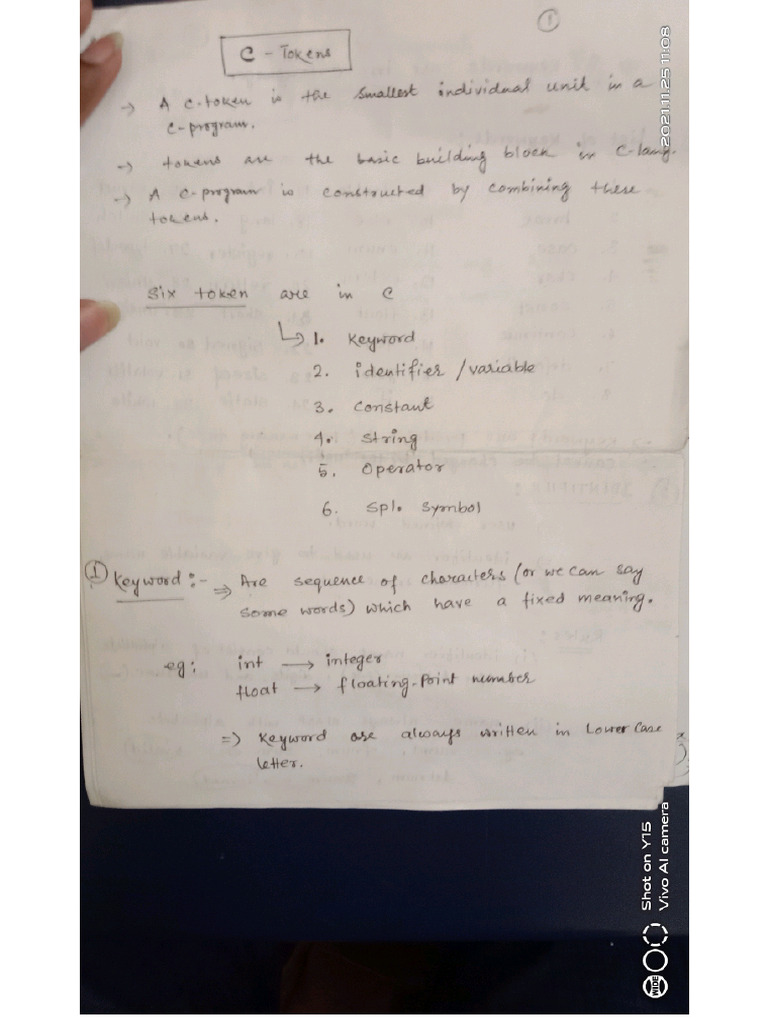 ①
C - Tokens
→ A C-token is the smallest individual unit in a
C-program.
→ tokens are the basic building block in C-lang.
→ A C-program is constructed by combining these
tokens.
Six token are in C
↳ 1. Keyword
2. identifier / variable
3. Constant
4. String
5. Operator
6. Spl. Symbol
① Keyword :- ⇒ Are sequence of characters (or we can say
some words) which have a fixed meaning.
eg: int → integer
float → floating-point number
⇒ Keyword are always written in Lower Case
letter.
2021.11.25 11:08
Shot on Y15
Vivo AI camera
WIDE